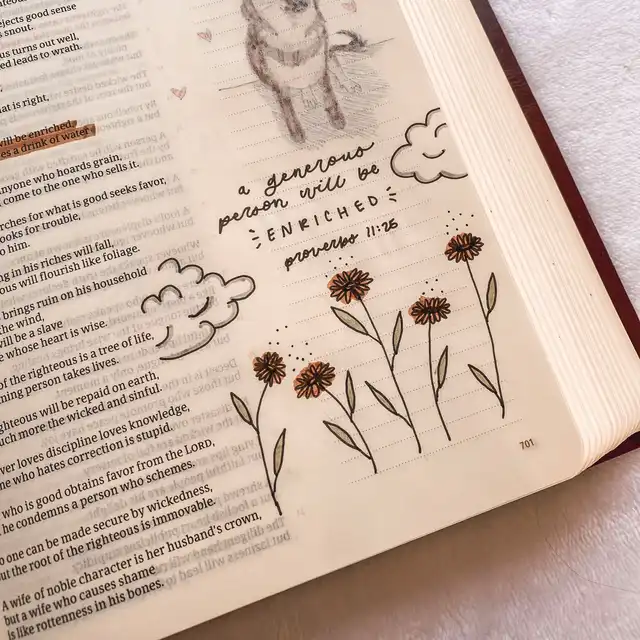 ejects good sense
snout.
us turns out well,
ed leads to wrath.
at is right,
will be enriched,
es a drink of water
anyone who hoards grain,
come to the one who sells it.
rches for what is good seeks favor,
ooks for trouble,
o him.
ng in his riches will fall,
ous will flourish like foliage.
brings ruin on his household
the wind,
will be a slave
e whose heart is wise.
of the righteous is a tree of life,
ning person takes lives.
ghteous will be repaid on earth,
uch more the wicked and sinful.
ver loves discipline loves knowledge,
one who hates correction is stupid.
who is good obtains favor from the LORD,
he condemns a person who schemes.
o one can be made secure by wickedness,
ut the root of the righteous is immovable.
A wife of noble character is her husband's crown,
but a wife who causes shame
is like rottenness in his bones.
a generous
person will be
ENRICHED
proverbs 11:25
701